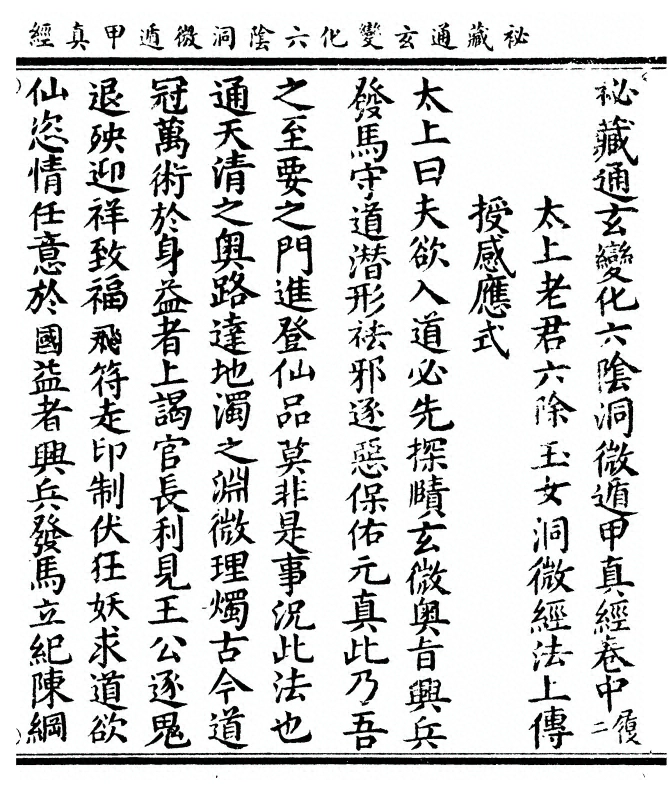 祕藏通玄變化六陰洞微遁甲真經
祕藏通玄變化六陰洞微遁甲真經卷中 履二
太上老君六除玉女洞微經法上傳
授感應式
太上曰夫欲入道必先探賾玄微奧旨興兵
發馬守道潜形祛邪逐惡保佑元真此乃吾
之至要之門進登仙品莫非是事況此法也
通天清之奥路達地濁之淵微理燭古今道
冠萬術於身益者上謁官長利見王公逐鬼
退殃迎祥致福飛符走印制伏狂妖求道欲
仙恣情任意於國益者興兵發馬立紀陳綱